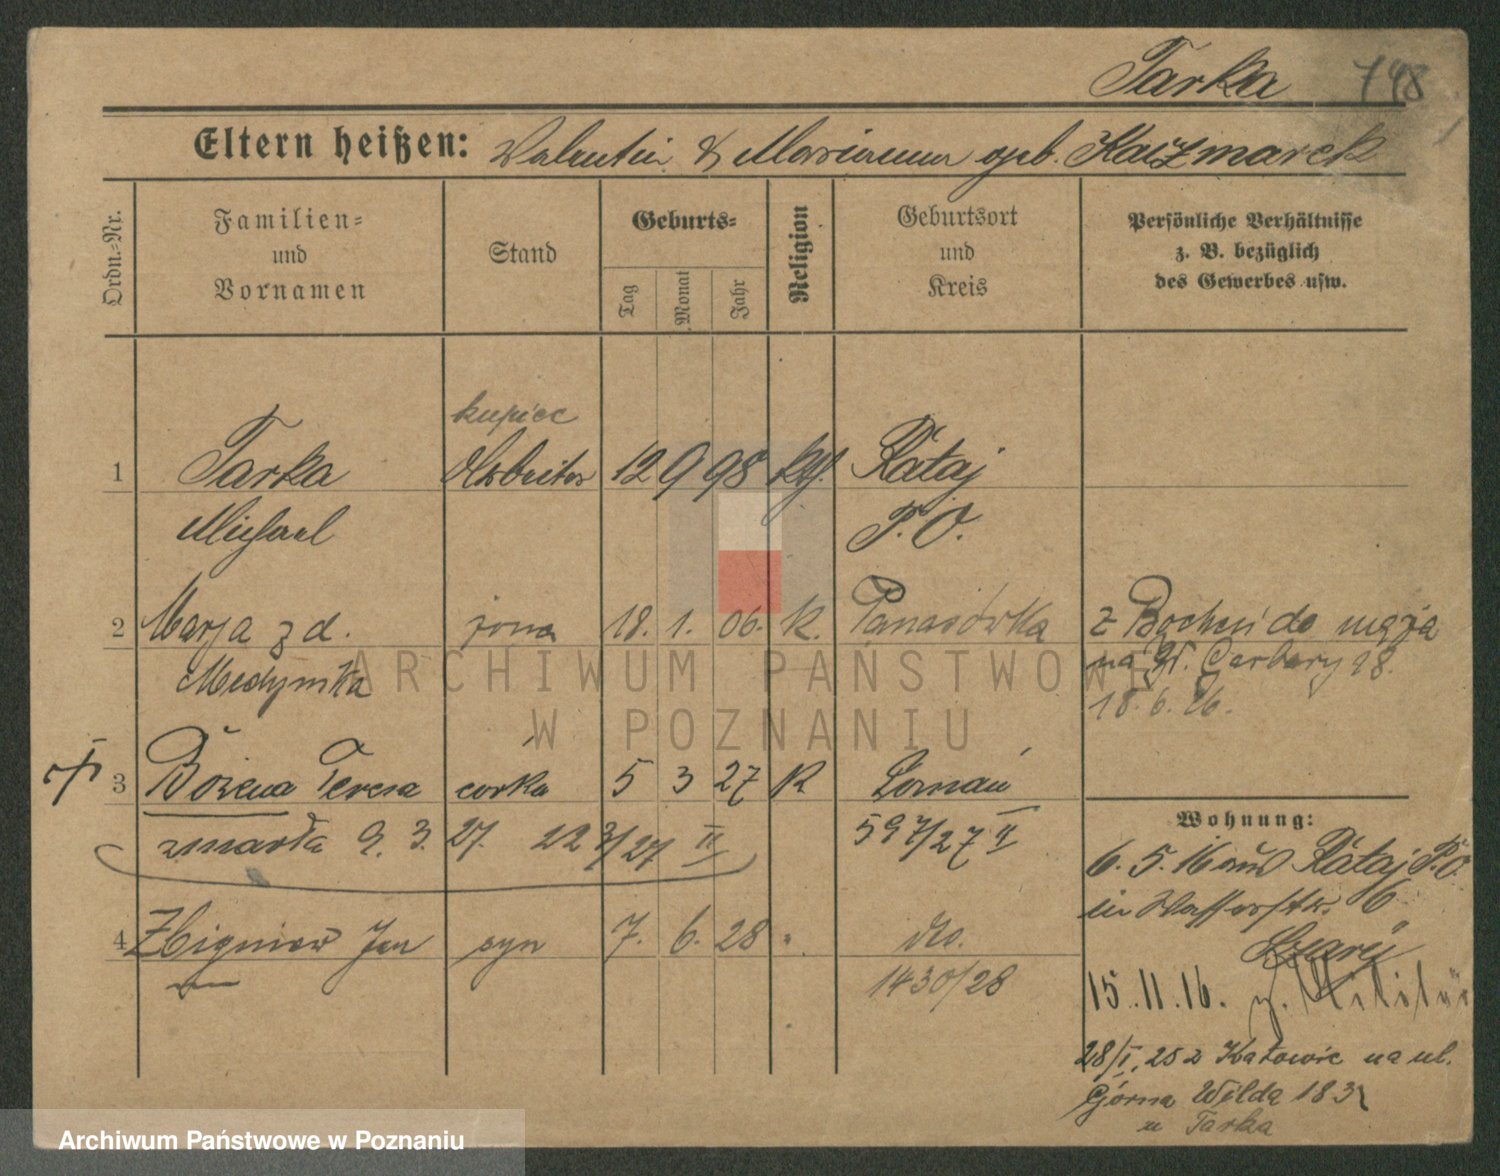 Tarka 748
Eltern heißen: Valentin & Marianna geb. Kaczmarek
Ordn.-Nr.
Familien-
und
Vornamen
Stand
Geburts-
Tag
Monat
Jahr
Religion
Geburtsort
und
Kreis
Persönliche Verhältnisse
z. B. bezüglich
des Gewerbes usw.
kupiec
1 Tarka Arbeiter 12 9 98 kth. Rataj
Michael P. O.
2 Marja z d. żona 18. 1. 06. k. Panasówka z Bochni do męża
Medynska na Garbary 28.
18. 6. 26.
3 Bożena Teresa córka 5 3 27 k Poznań
zmarła 9. 3. 27. 223/27 II 597/27 II
Wohnung:
6. 5. 16 aus Rataj P. O.
in Wasserstr. 6
4 Zbigniew Jan syn 7. 6. 28 " dto.
1430/28
15. 11. 16. z. Militär
28/I. 25 z Katowic na ul.
Górna Wilda 183
u Tarka
ARCHIWUM PAŃSTWOWE
W POZNANIU
Archiwum Państwowe w Poznaniu